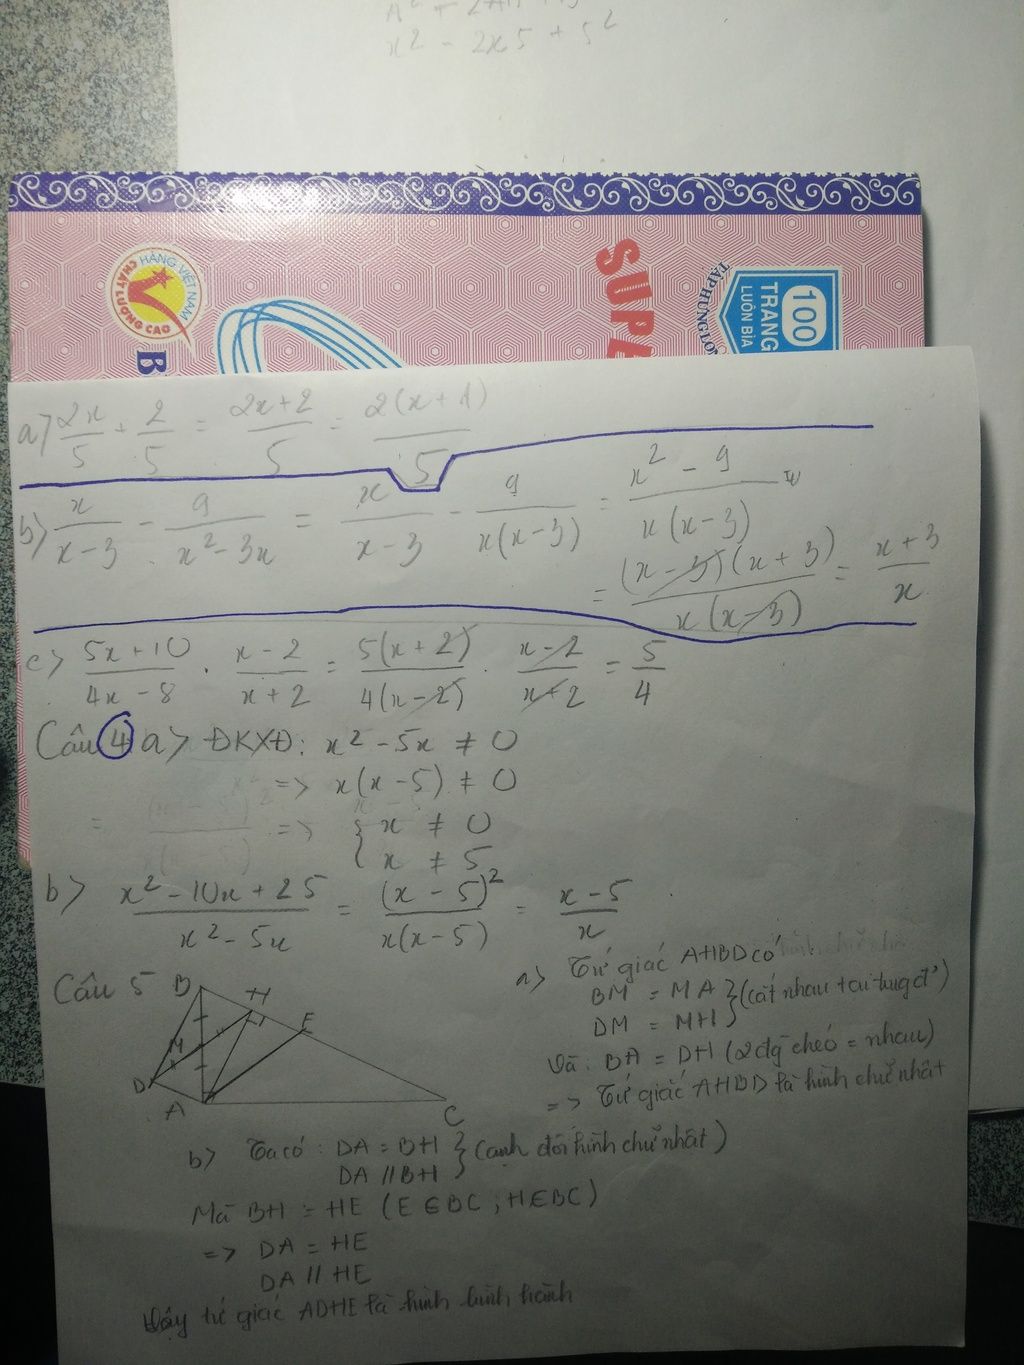 x² - 2x5 + 5²
HÀNG VIỆT NAM
CHẤT LƯỢNG CAO
SUPE
100
TRANG
LUÔN BÌA
B
a> 2x/5 + 2/5 = 2x+2/5 = 2(x+1)/5
b> x/x-3 - 9/x²-3x = x/x-3 - 9/x(x-3) = x²-9/x(x-3)
= (x-3)(x+3)/x(x-3) = x+3/x
c> 5x+10/4x-8 . x-2/x+2 = 5(x+2)/4(x-2) . x-2/x+2 = 5/4
Câu 4 a> ĐKXĐ: x² - 5x ≠ 0
=> x(x-5) ≠ 0
=> { x ≠ 0
x ≠ 5
b> x²-10x+25/x²-5x = (x-5)²/x(x-5) = x-5/x
Câu 5
B H E M D A C
a> Tứ giác AHBD có
BM = MA } (cắt nhau tại trung đ')
DM = MH
Và: BA = DH (2 đg chéo = nhau)
=> Tứ giác AHBD là hình chữ nhât
b> Ta có: DA = BH } (cạnh đối hình chữ nhất)
DA // BH
Mà BH = HE (E ∈ BC; H ∈ BC)
=> DA = HE
DA // HE
Vậy tứ giác ADHE là hình bình hành